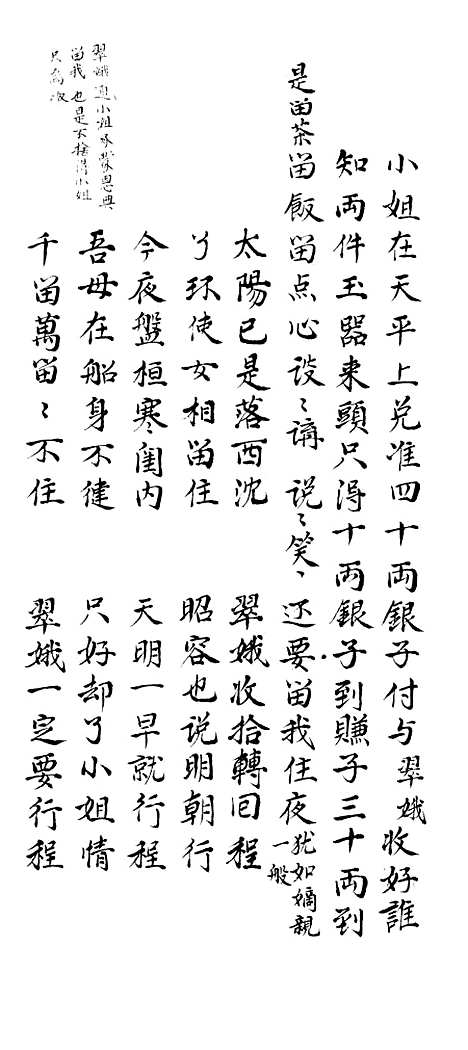 小姐在天平上兑准四十両銀子付与翠娥收好誰
知両件玉器来頭只得十両銀子到賺子三十両到
是畄茶畄飯畄点心谈〻講〻说〻笑〻还要畄我住夜犹如嫡親一般
太陽已是落西沈 翠娥收拾轉回程
丫环使女相畄住 昭容也说明朝行
今夜盤桓寒闺内 天明一早就行程
吾母在船身不健 只好却了小姐情
千畄萬畄〻不住 翠娥一定要行程
翠娥道小姐承蒙恩典
畄我也是不捨得小姐
只為家